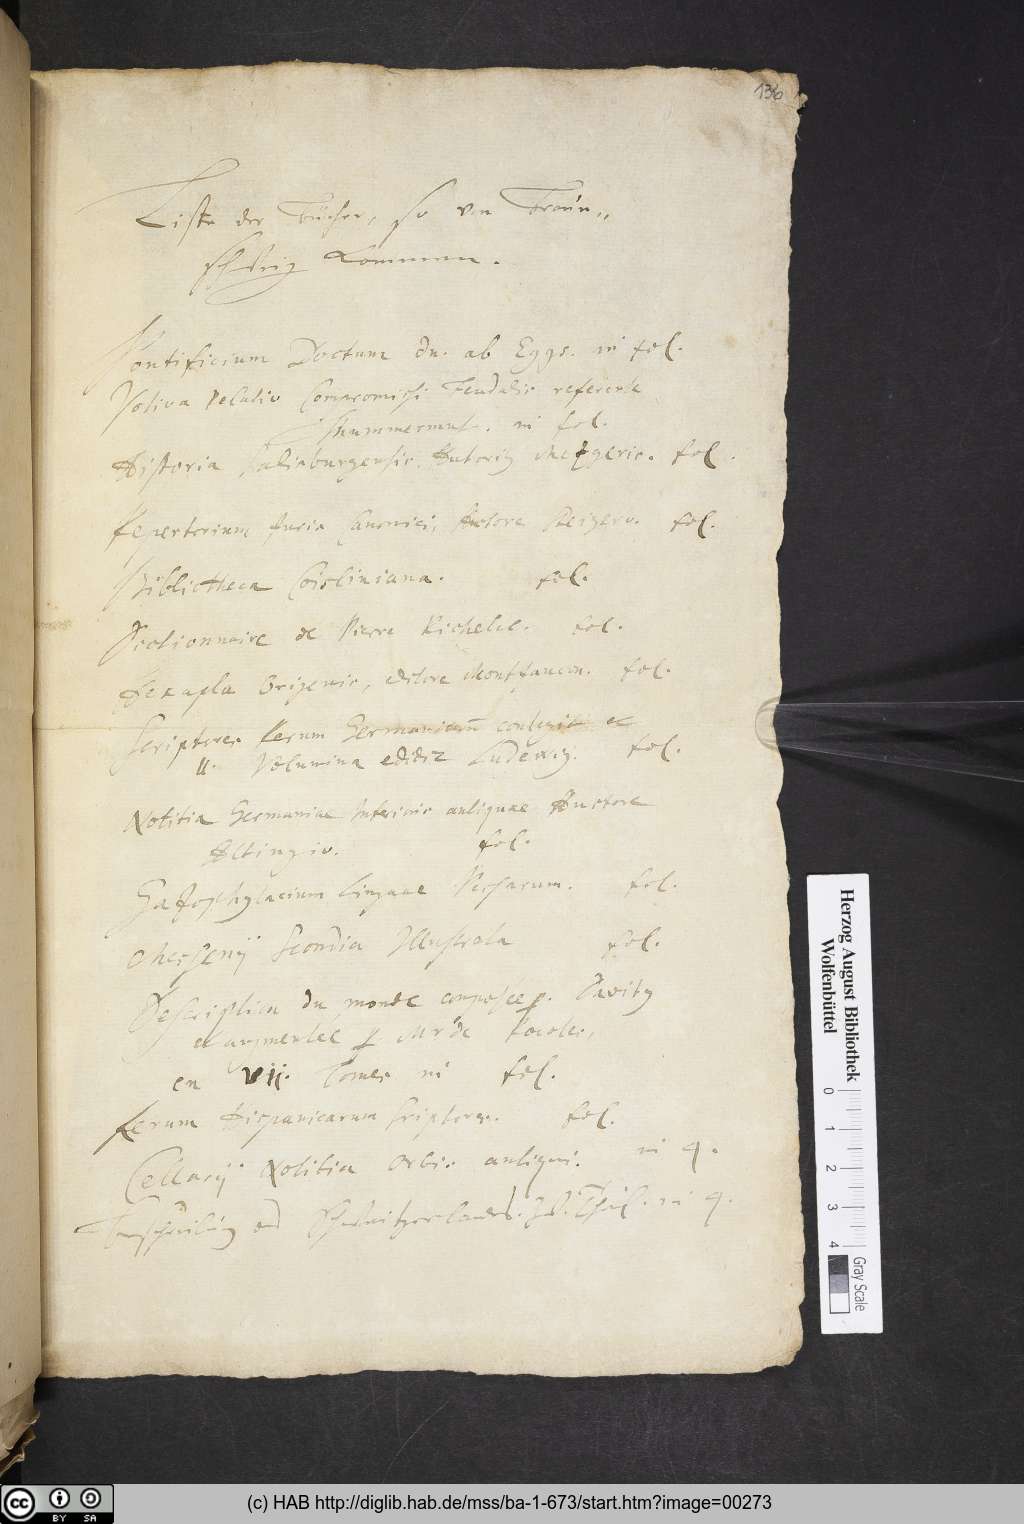 136
Liste der Bücher, so von Braun„
schweig kommen.
Pontificium Doctum du. ab Eggs. in fol.
Votiva Relatio Compromissi Feudalis referente
Thummermut. in fol.
Historia Salisburgensis Autorib Mezgeris. fol.
Repertorium Juris Canonici, Autore fol.
Bibliotheca Coisliniana. fol.
Dictionnaire de Pierre Richelet. fol.
Hexapla Origenis, editore Montfaucon. fol.
Scriptores Rerum Germanicarū
II. Volumina edidit Ludewig. fol.
Notitia Germaniae Inferioris antiquae Auctore
Altingio. fol.
Gazophylacium Linguae Persarum. fol.
Messenij Scondia Illustrata fol.
Description du monde composée p. Davity
et augmentée p Mr de Rocoles,
en VII. Tomes in fol.
Rerum Hispanicarum Scriptores. fol.
Cellarij Notitia Orbis antiqui. in 4.
Schweitzerlandes. in 4.
Herzog August Bibliothek
Wolfenbüttel
0 1 2 3 4
Gray Scale
cc BY SA
(c) HAB http://diglib.hab.de/mss/ba-1-673/start.htm?image=00273